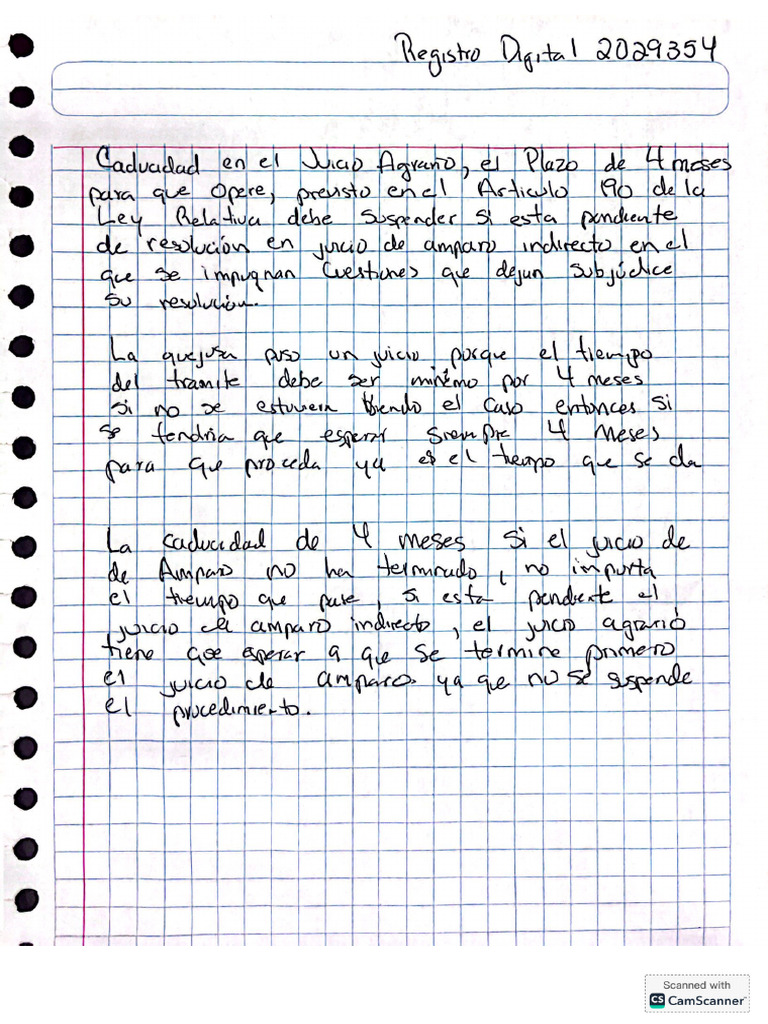 Registro Digital 2029354
Caducidad en el Juicio Agrario, el Plazo de 4 meses
para que Opere, previsto en el Articulo 190 de la
Ley Relativa debe suspender si esta pendiente
de resolución en juicio de amparo indirecto en el
que se impugnan Cuestiones que dejan subjúdice
su resolución.
La quejosa puso un juicio porque el tiempo
del tramite debe ser minimo por 4 meses
si no se estuviera viendo el caso entonces si
se tendria que esperar siempre 4 meses
para que proceda ya es el tiempo que se da
La caducidad de 4 meses si el juicio de
de Amparo no ha terminado, no importa
el tiempo que pase, si esta pendiente el
juicio de amparo indirecto, el juicio agrario
tiene que esperar a que se termine primero
el juicio de amparo. ya que no se suspende
el procedimiento.
Scanned with
CS CamScanner